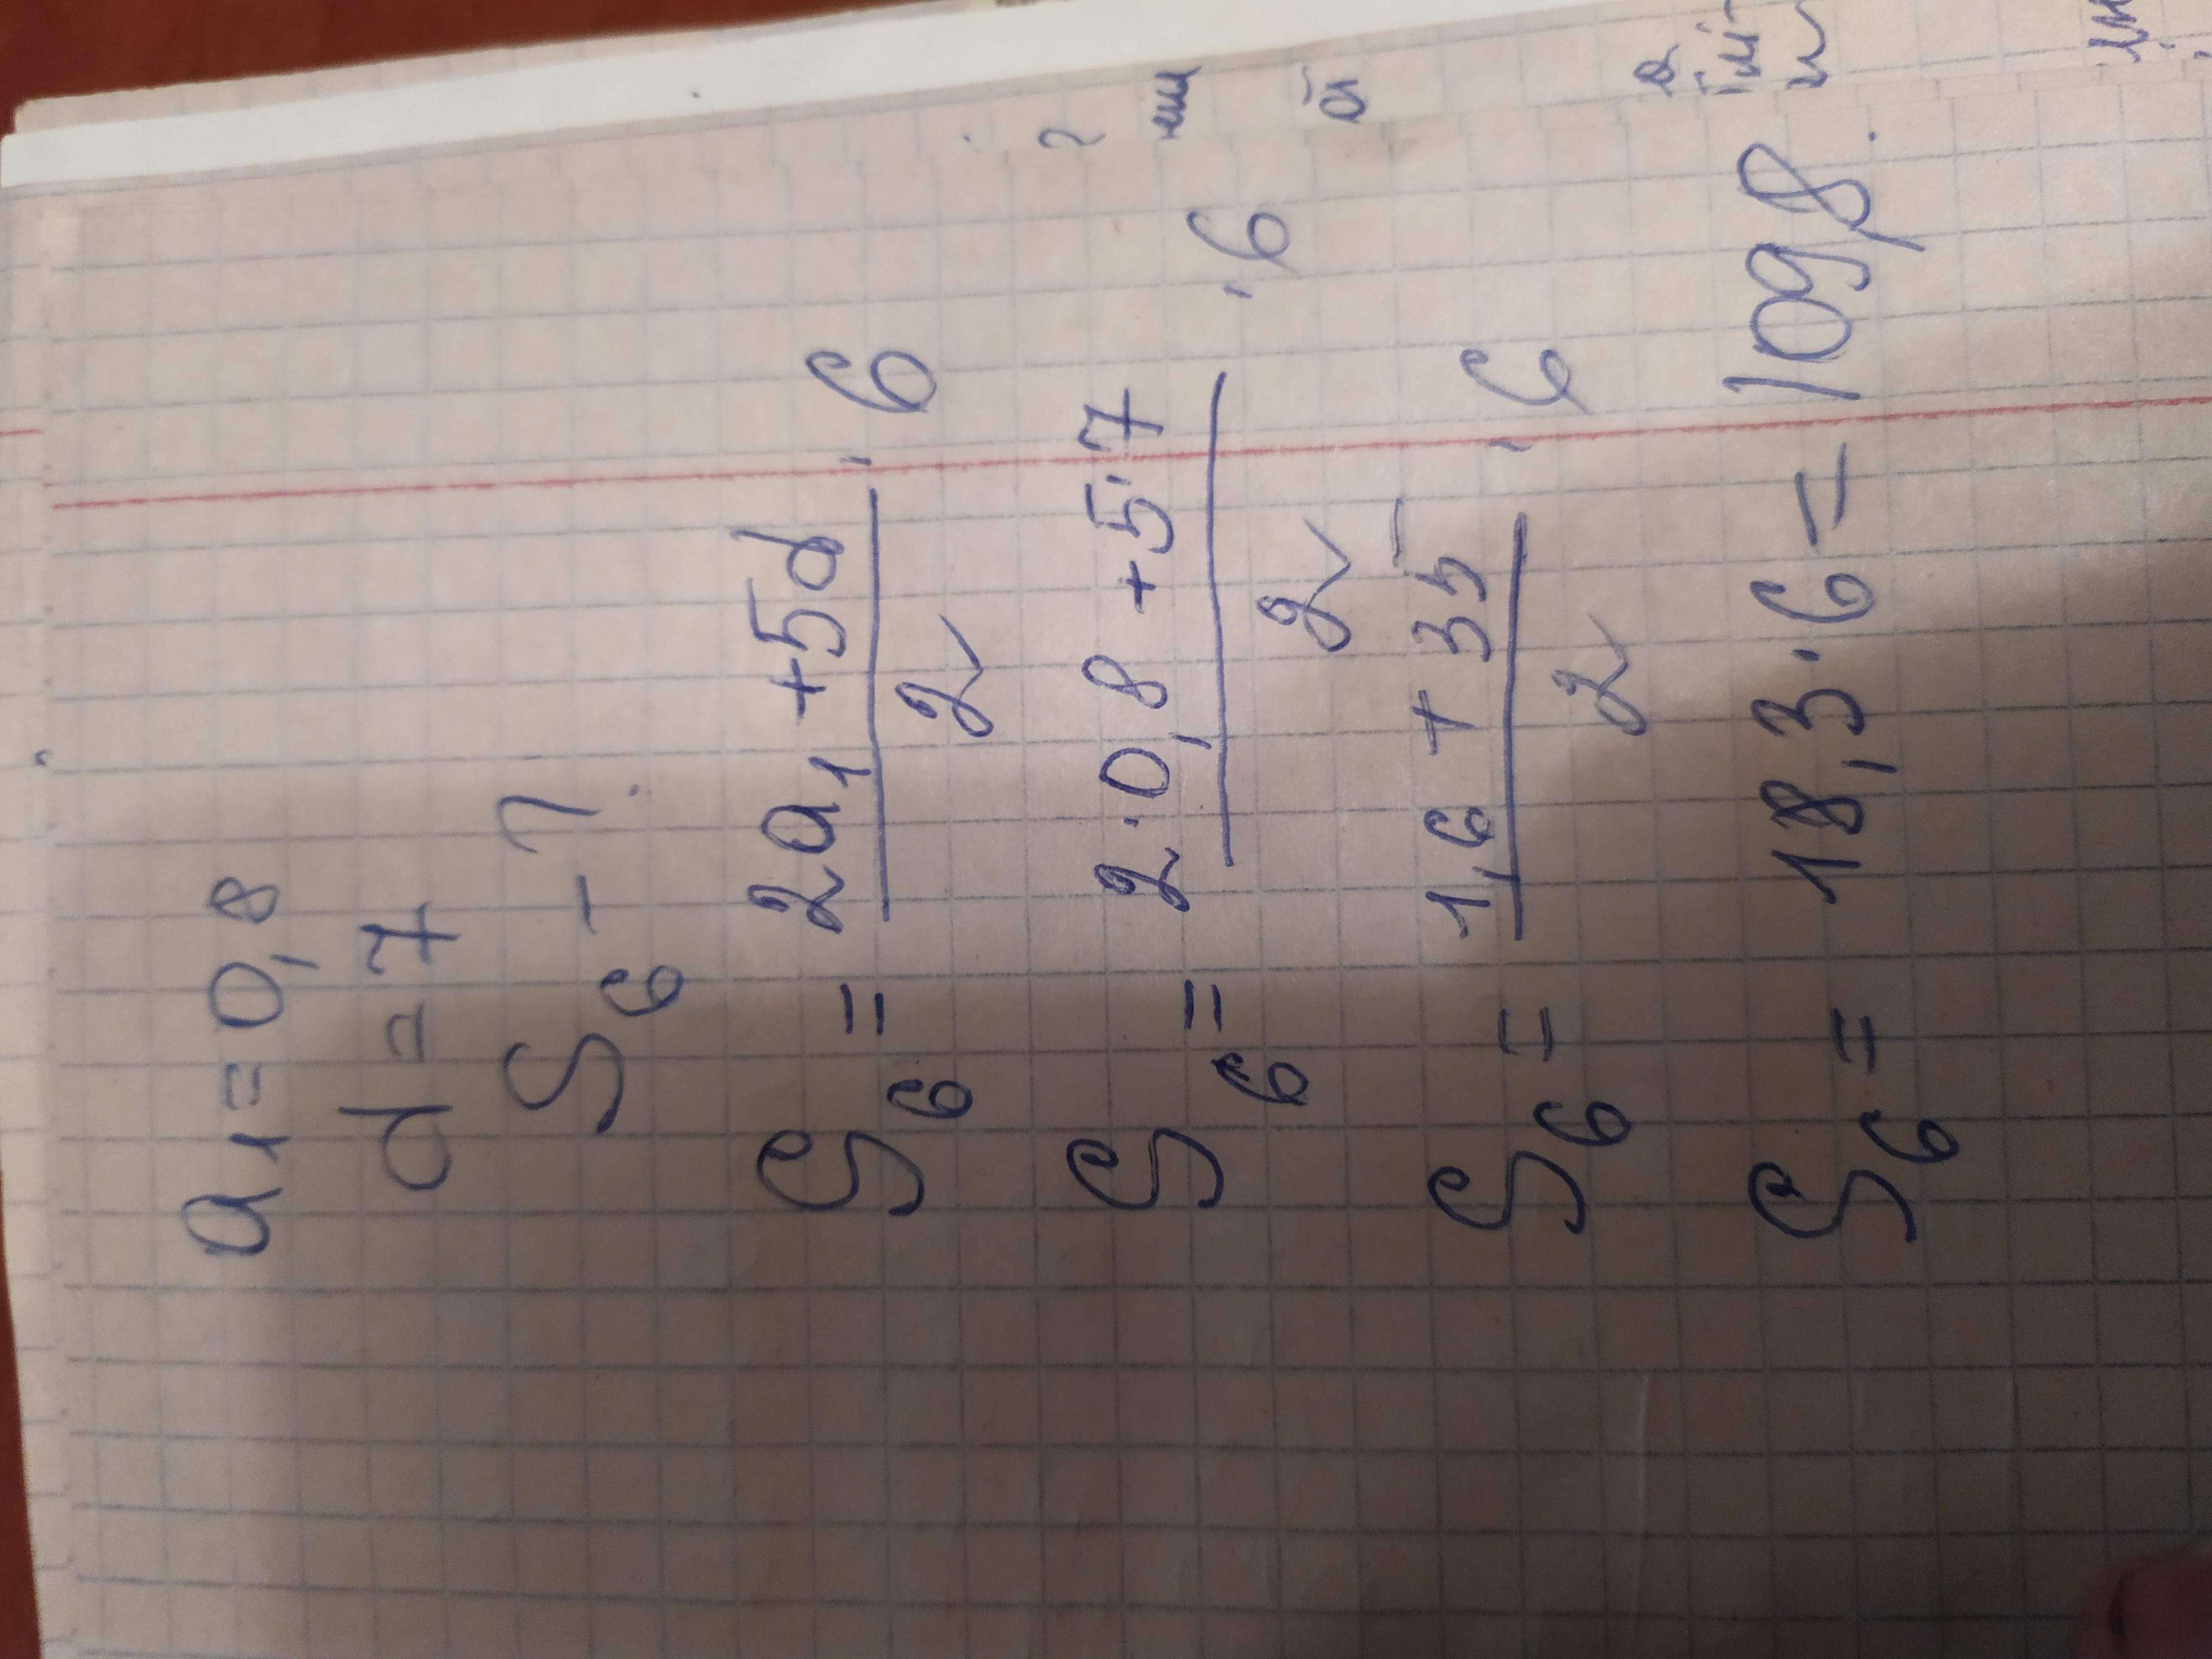 a₁ = 0,8
d = 7
S₆ - ?
S₆ = (2a₁ + 5d)/2 · 6
S₆ = (2 · 0,8 + 5 · 7)/2 · 6
S₆ = (1,6 + 35)/2 · 6
S₆ = 18,3 · 6 = 109,8.